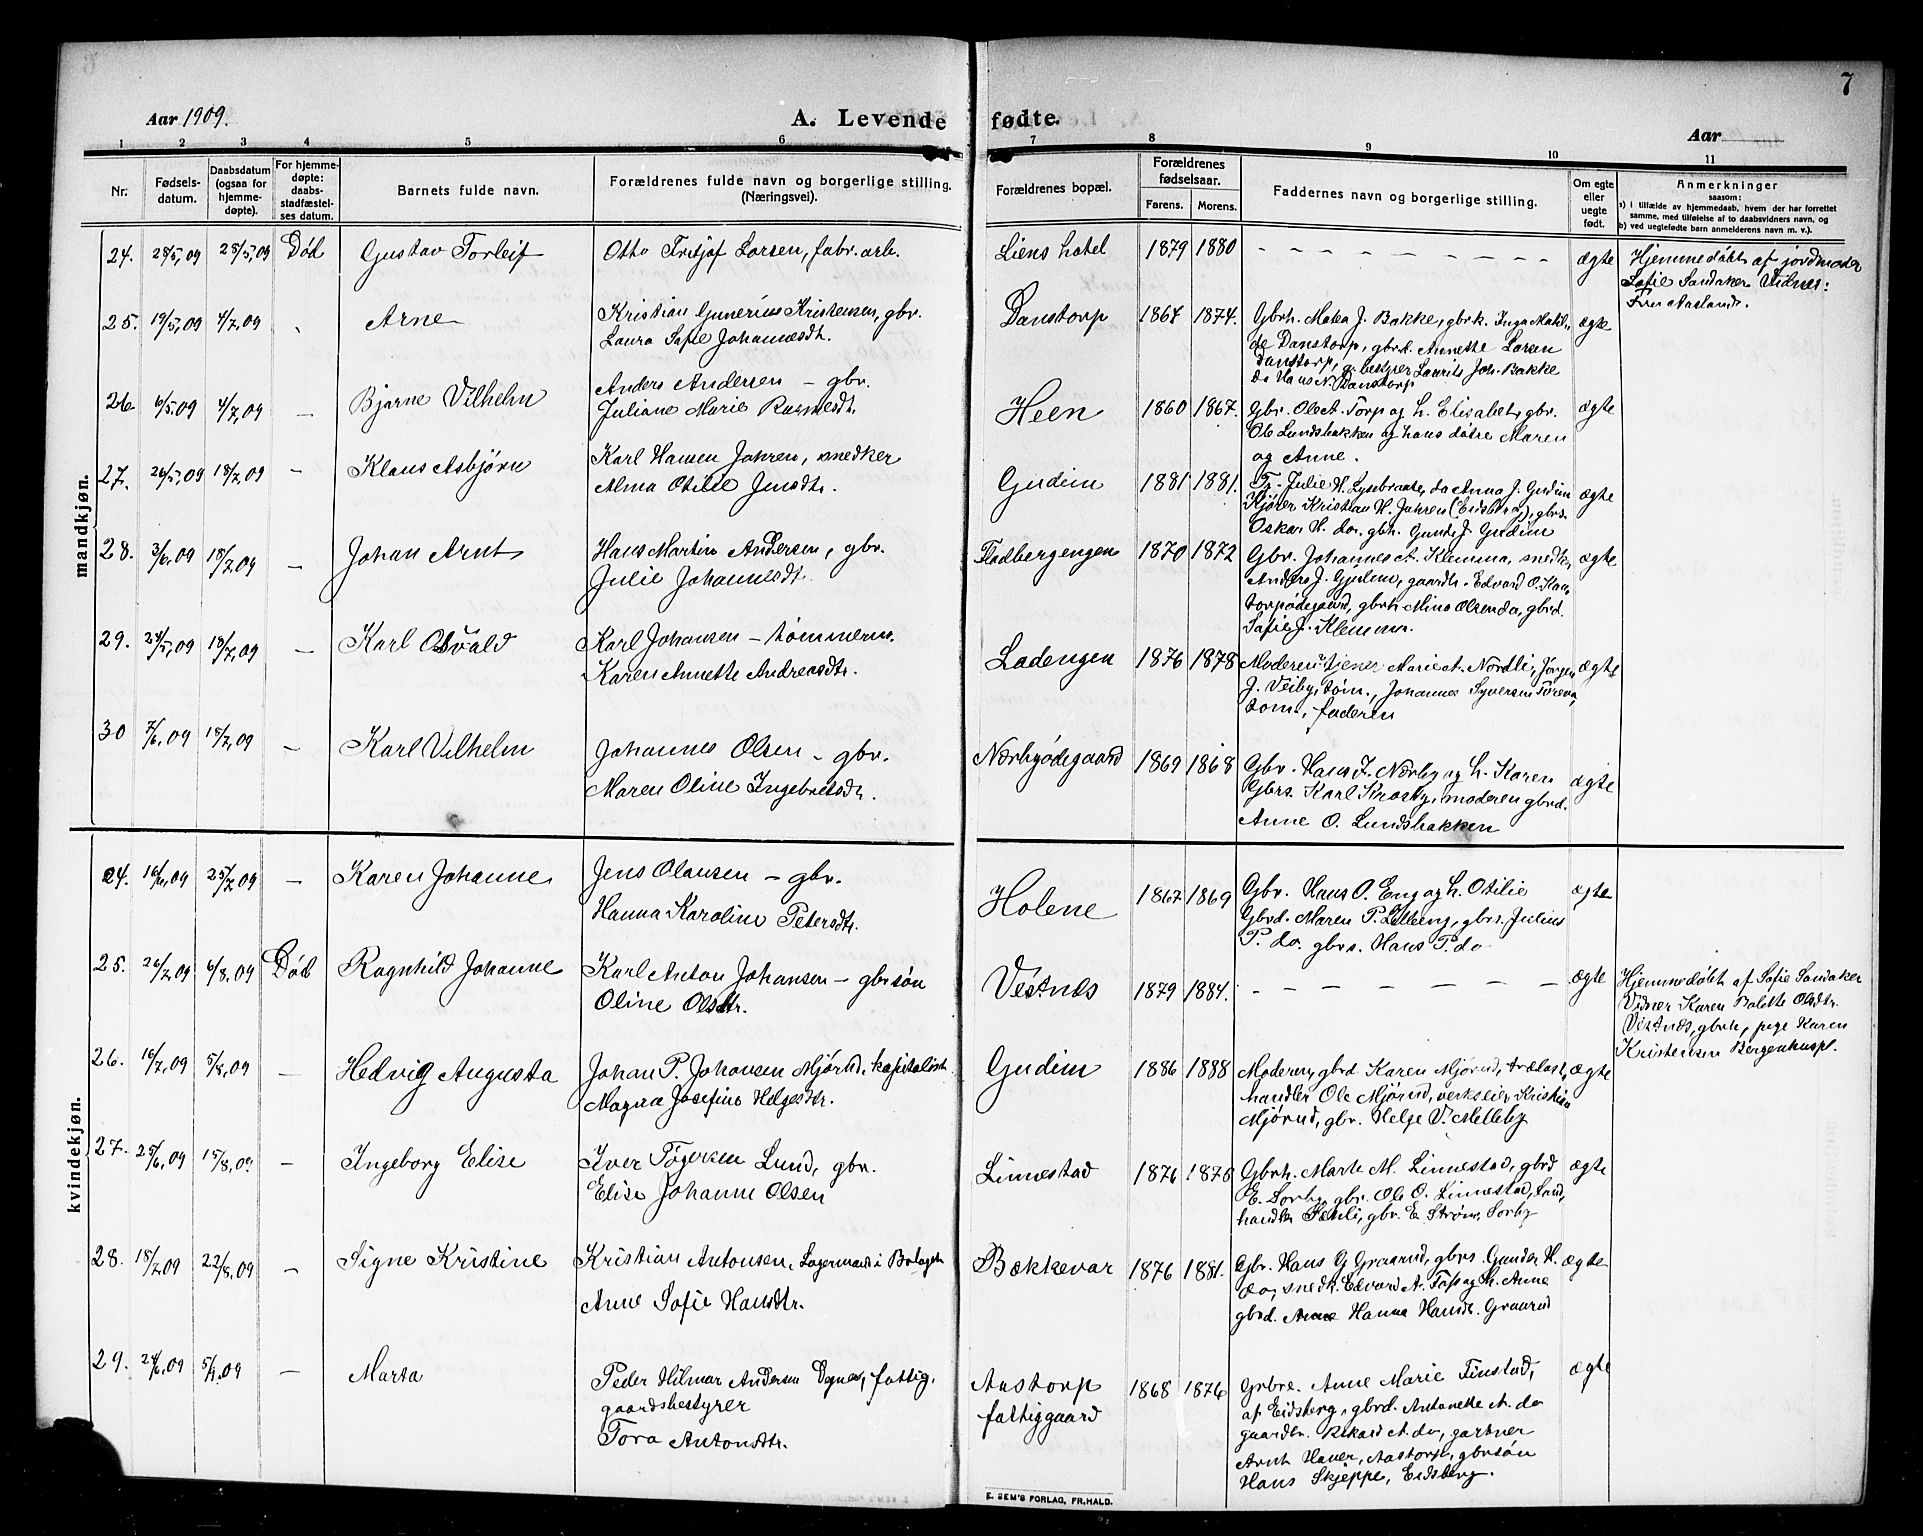 7
Aar 1909.
A. Levende fødte.
Aar
1 2 3 4 5 6 7 8 9 10 11
Nr.
Fødsels-
datum.
Daabsdatum
(ogsaa for
hjemme-
døpte).
For hjemme-
døpte:
daabs-
stadfæstel-
ses datum.
Barnets fulde navn.
Forældrenes fulde navn og borgerlige stilling.
(Næringsvei).
Forældrenes bopæl.
Forældrenes
fødselsaar.
Farens. Morens.
Faddernes navn og borgerlige stilling.
Om egte
eller
uegte
født.
Anmerkninger
saasom:
a) i tilfælde av hjemmedaab, hvem der har forrettet
samme, med tilføielse af to daabsvidners navn, og
b) ved uegtefødte barn anmelderens navn m. v.).
mandkjøn.
24. 28/5,09 28/5,09 Død Gustav Torleif Otto Fritjof Larsen, fabr. arb. Liens hotel 1879 1880 – – – – – – – – – ægte Hjemmedøbt af jordmoder
Sofie Sandaker Vidnes:
Fru Aaslands.
25. 19/5,09 4/7,09 Arne Kristian Gunerius Kristensen, gbr.
Laura Sofie Johannesdt. Danstorp 1864 1874. Gbrh. Matea J. Bakke, gbrk. Inga Matil-
de Danstorp, gbrd. Annette Larsen
Danstorp, g.bestyrer Laurits Joh. Bakke
do Hans N. Danstorp ægte
26 6/5,09 4/7,09 – Bjarne Vilhelm Anders Andersen – gbr.
Juliane Marie Rasmusdt. Heen 1860 1867. Gbr. Ole A. Torp og h. Elisabet, gbr.
Ole Lundsbakken og hans døtre Maren
og Anne. ægte
27. 26/5,09 18/7,09 – Klaus Asbjørn Karl Hansen Jahren, snedker
Alma Otilie Jensdt. Gudim 1881 1881. Fr. Julie H. Lysebraate, do Anna J. Gudim
Kjører Kristian H. Jahren (Eidsberg), gbrs.
Oskar H. do, gbh. Gunda J. Gudim ægte
28. 3/6,09 18/7,09 – Johan Arnt Hans Martin Andersen, gbr.
Julie Johannesdt. Fladbergengen 1870 1872 Gbr. Johannes A. Klemma, snedk,
Anders J. Gjulem, gaardb. Edvard O. Kas
torpødegaard, gbrh Mina Olsen do, gbrd.
Sofie J. Klemma. ægte
29. 24/5,09 18/7,09 – Karl Osvald Karl Johansen – tømmerm.
Karen Annette Andreasdt. Ladengen 1876 1878 Moderen, tjener Marie A. Nordli, Jørgen
J. Veiby, tøm., Johannes Syversen
tøm., faderen ægte
30 7/6,09 18/7,09 – Karl Vilhelm Johannes Olsen – gbr.
Maren Oline Ingebretsdt. Nærbyødegaard 1869 1868 Gbr. Hans J. Nærby og h. Karen
Gbrs. Karl Krosby, moderen gbrd.
Anne O. Lundsbakken ægte
kvindekjøn.
24. 16/6,09 25/7,09 – Karen Johanne Jens Olausen – gbr.
Hanna Karoline Petersdt. Holene 1867 1869 Gbr. Hans O. Eng og h. Otilie
Gbrd. Maren P. Lilleeng, gbrs. Julius
P. do. gbrs. Hans P. do ægte
25. 26/7,09 6/8,09 Død Ragnhild Johanne Karl Anton Johansen – gbrsøn
Oline Olsdtr. Vestnes 1879 1884. – – – – – – – ægte Hjemmedøbt af Sofie Sandaker
Vidner Karen Bolette Olsdtr.
Vestnes, gbrh, pige Karen
Kristensen Bergenhuspl.
26. 16/7,09 5/8,09 – Hedvig Augusta Johan P. Johansen Mjørud, kapitalist
Magna Josefine Helgesdtr. Gudim 1886 1888 Moderen, gbrd Karen Mjørud, trælast,
handler Ole Mjørud, verkseier Kristian
Mjørud, gbr. Helge V. Melleby ægte
27. 25/6,09 15/8,09 – Ingeborg Elise Iver Tøgersen Lund, gbr.
Elise Johanne Olsen Linnestad 1876 1875 Gbrh. Marte M. Linnestad, gbrd
E. Sorby, gbr. Ole O. Linnestad, Land,
handk. Sætli, gbr. E. Strøm, Sorby ægte
28. 18/7,09 22/8,09 – Signe Kristine Kristian Antonsen, Lagermand i Bolaget
Anne Sofie Hansdtr. Bækkevar 1876 1881. Gbr. Hans G Graarud, gbrs. Gunder H.
do, snedk. Edvard A. Fossog h. Anne
gbrd. Anne Hanna Hansdt. Graarud ægte
29. 24/6,09 5/9,09 – Marta Peder Hilmar Andersen Ognes, fattig,
gaardsbestyrer
Tora Antonsdtr. Aastorp
fattiggaard 1868 1876 Grbre. Anne Marie Finstad,
af Eidsberg, gbrd. Antonette A. do
gaardbr. Rikard A. do, gartner
Arnt Haner, Aastorp, gbrsøn
Hans Skjeppe, Eidsberg. ægte
E. SEM'S FORLAG, FR.HALD.